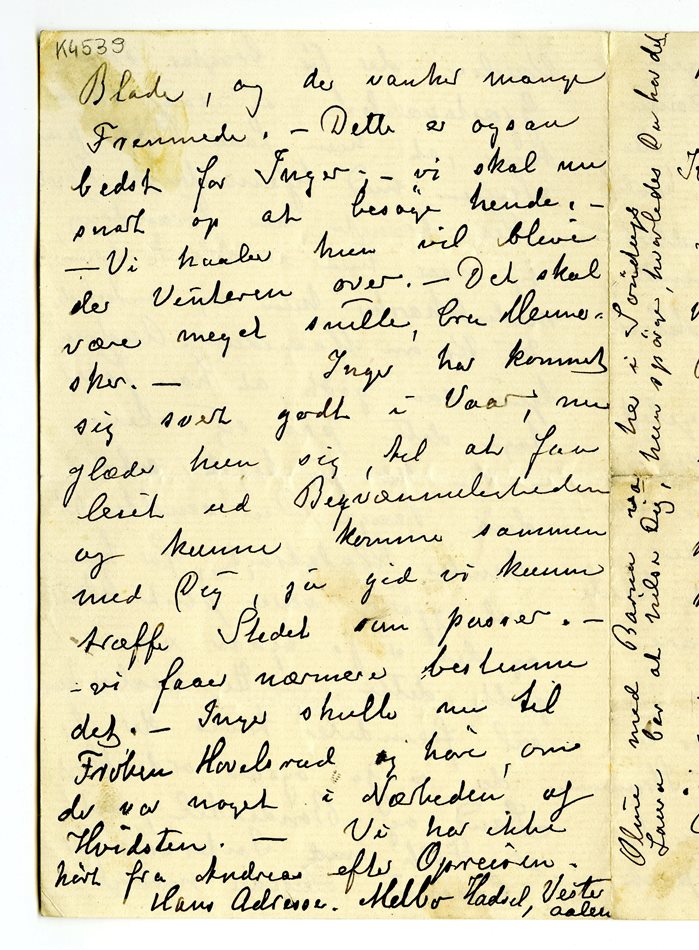 K4539
Blade, og der vanker mange
Fremmede. – Dette er ogsaa
bedst for Inger; – vi skal nu
snart op at besøge hende. –
– Vi haaber hun vil blive
der Vinteren over. – Det skal
være meget snille, bra Menne-
sker. – Inger har kommet
sig svert godt i Vaar, nu
glæder hun sig, til at faa
læst ud
og kunne komme sammen
med Dig, ja gid vi kunne
træffe Stedet som passer. –
– vi faaer nærmere bestemme
det. – Inger skulle nu til
Frøken Hovelsrud og høre, om
der var noget i Nærheden af
Hvidsten. – Vi har ikke
hørt fra Andreas efter Opreisen.
Hans Adresse. Melbo Hadsel, Vester
aalen
Oline med Barna var her i Søndags
Laura ber at hilse Dig, hun spørger, hvorledes Du har det